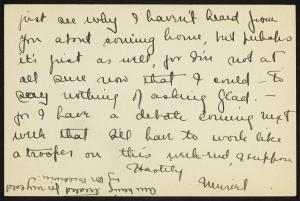 just see why I haven't heard from
you about coming home, but perhaps
it's just as well, for I'm not at
all sure now that I could – to
say nothing of asking Glad. –
for I have a debate coming next
week that I'll have to work like
a trooper on this week-end, I suppose
Hastily
Muriel